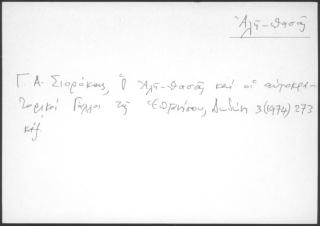 Ἀλῆ-πασᾶς
Γ. Α. Σιοράκας, Ὁ Ἀλῆ-πασᾶς καὶ οἱ αὐτοκρα-
τορικοὶ Γάλλοι τῆς Ἠπείρου, Δωδώνη 3 (1974) 273
κἑξ.